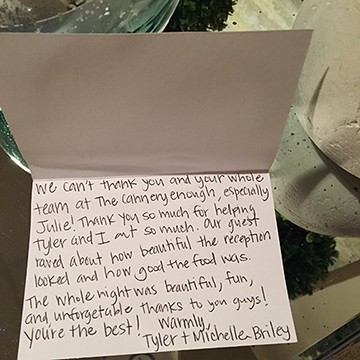 We can't thank you and your whole
team at The Cannery enough, especially
Julie! Thank you so much for helping
Tyler and I out so much. Our guest
raved about how beautiful the reception
looked and how good the food was.
The whole night was beautiful, fun,
and unforgetable thanks to you guys!
you're the best! Warmly,
Tyler + Michelle Briley